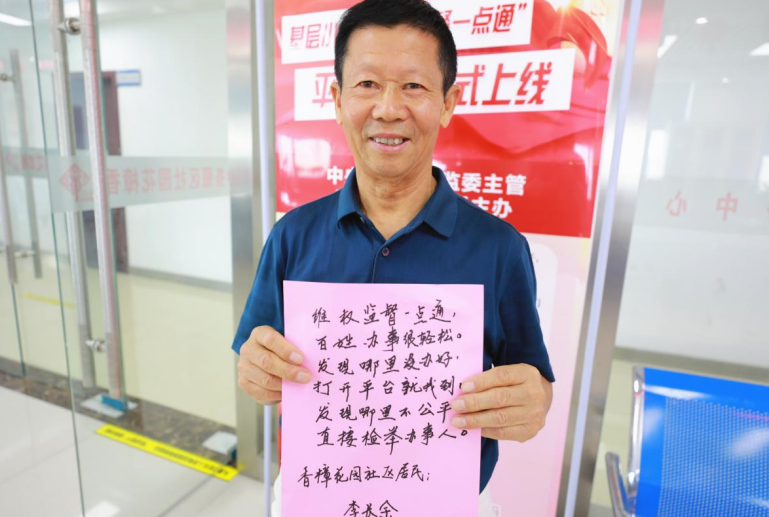 基层小
督一点通”
平
式上线
中央
监委主管
主办
中心
维权监督一点通，
百姓办事很轻松。
发现哪里没办好，
打开平台就找到，
发现哪里不公平
直接检举办事人。
香樟花园社区居民：
李长余